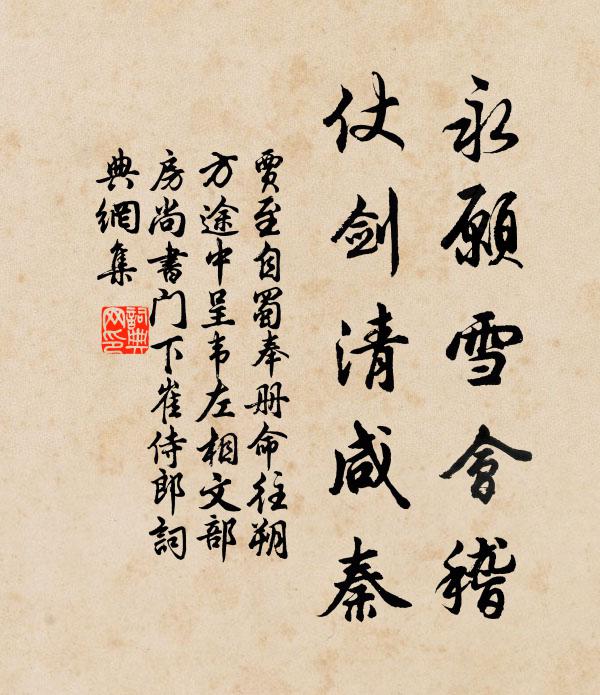 永願雪會稽
仗剑清咸秦
賈至自蜀奉册命往朔
方途中呈韦左相文部
房尚書门下崔侍郎詞
典網集
詞典
网印